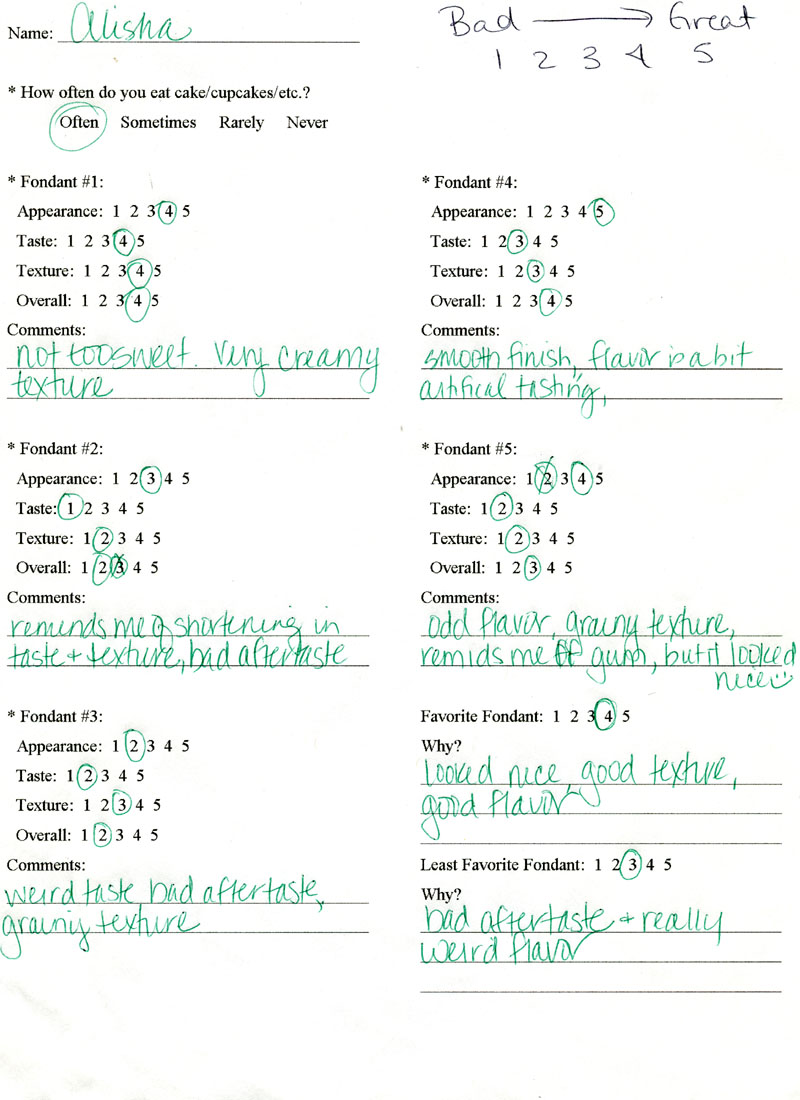 Name: Alisha
Bad → Great
1 2 3 4 5
* How often do you eat cake/cupcakes/etc.?
Often Sometimes Rarely Never
* Fondant #1:
Appearance: 1 2 3 4 5
Taste: 1 2 3 4 5
Texture: 1 2 3 4 5
Overall: 1 2 3 4 5
Comments:
not too sweet. Very creamy
texture
* Fondant #2:
Appearance: 1 2 3 4 5
Taste: 1 2 3 4 5
Texture: 1 2 3 4 5
Overall: 1 2 3 4 5
Comments:
reminds me of shortening in
taste + texture, bad aftertaste
* Fondant #3:
Appearance: 1 2 3 4 5
Taste: 1 2 3 4 5
Texture: 1 2 3 4 5
Overall: 1 2 3 4 5
Comments:
weird taste, bad aftertaste,
grainy texture
* Fondant #4:
Appearance: 1 2 3 4 5
Taste: 1 2 3 4 5
Texture: 1 2 3 4 5
Overall: 1 2 3 4 5
Comments:
smooth finish, flavor is a bit
artifical tasting,
* Fondant #5:
Appearance: 1 2 3 4 5
Taste: 1 2 3 4 5
Texture: 1 2 3 4 5
Overall: 1 2 3 4 5
Comments:
odd flavor, grainy texture,
remids me of gum, but it looked
nice
Favorite Fondant: 1 2 3 4 5
Why?
looked nice, good texture,
good flavor
Least Favorite Fondant: 1 2 3 4 5
Why?
bad aftertaste + really
weird flavor